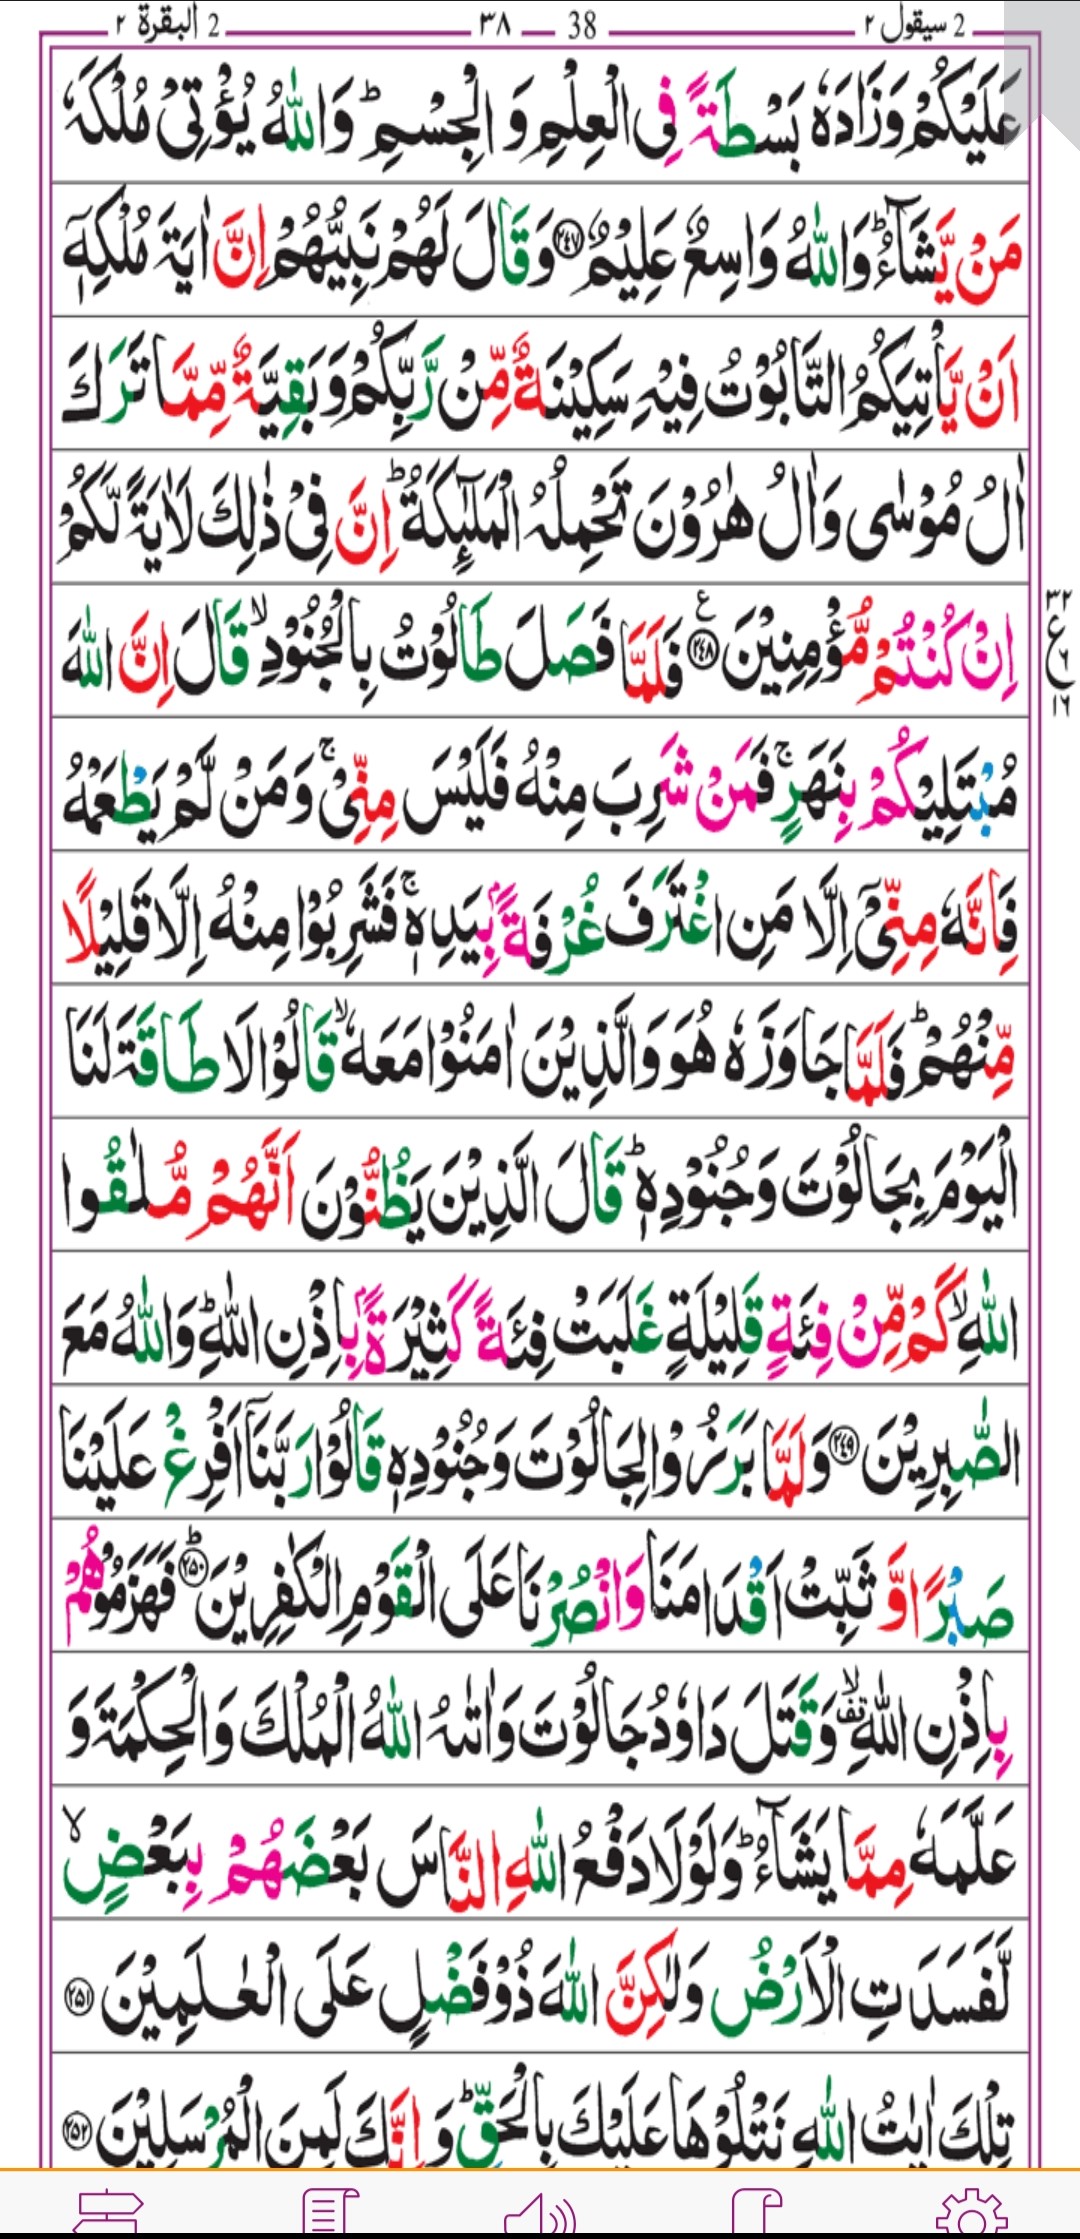 2 سيقول ٢ 38 ٣٨ 2 البقرة ٢
عَلَيۡكُمۡ وَزَادَهٗ بَسۡطَةً فِى الۡعِلۡمِ وَ الۡجِسۡمِ‌ؕ وَاللّٰهُ يُؤۡتِىۡ مُلۡکَهٗ
مَنۡ يَّشَآءُ‌ؕ وَاللّٰهُ وَاسِعٌ عَلِيۡمٌ‏ ﴿۲۴۷﴾ وَقَالَ لَهُمۡ نَبِيُّهُمۡ اِنَّ اٰيَةَ مُلۡکِهٖۤ
اَنۡ يَّاۡتِيَکُمُ التَّابُوۡتُ فِيۡهِ سَکِيۡنَةٌ مِّنۡ رَّبِّکُمۡ وَبَقِيَّةٌ مِّمَّا تَرَكَ
اٰلُ مُوۡسٰى وَاٰلُ هٰرُوۡنَ تَحۡمِلُهُ الۡمَلٰٓٮِٕكَةُ‌ؕ اِنَّ فِىۡ ذٰلِكَ لَاٰيَةً لَّـکُمۡ
اِنۡ كُنۡتُمۡ مُّؤۡمِنِيۡنَ ﴿۲۴۸﴾ ع فَلَمَّا فَصَلَ طَالُوۡتُ بِالۡجُـنُوۡدِۙ قَالَ اِنَّ اللّٰهَ
٣٢ ع ٦ ١٦
مُبۡتَلِيۡکُمۡ بِنَهَرٍۚ فَمَنۡ شَرِبَ مِنۡهُ فَلَيۡسَ مِنِّىۡۚ وَمَنۡ لَّمۡ يَطۡعَمۡهُ
فَاِنَّهٗ مِنِّىۡٓ اِلَّا مَنِ اغۡتَرَفَ غُرۡفَةًۢ بِيَدِهٖ‌ۚ فَشَرِبُوۡا مِنۡهُ اِلَّا قَلِيۡلًا
مِّنۡهُمۡ‌ؕ فَلَمَّا جَاوَزَهٗ هُوَ وَالَّذِيۡنَ اٰمَنُوۡا مَعَهٗۙ قَالُوۡا لَا طَاقَةَ لَنَا
الۡيَوۡمَ بِجَالُوۡتَ وَجُنُوۡدِهٖ‌ؕ قَالَ الَّذِيۡنَ يَظُنُّوۡنَ اَنَّهُمۡ مُّلٰقُوا
اللّٰهِۙ کَمۡ مِّنۡ فِئَةٍ قَلِيۡلَةٍ غَلَبَتۡ فِئَةً کَثِيۡرَةًۢ بِاِذۡنِ اللّٰهِ‌ؕ وَاللّٰهُ مَعَ
الصّٰبِرِيۡنَ ﴿۲۴۹﴾ وَلَمَّا بَرَزُوۡا لِجَالُوۡتَ وَجُنُوۡدِهٖ قَالُوۡا رَبَّنَآ اَفۡرِغۡ عَلَيۡنَا
صَبۡرًا وَّ ثَبِّتۡ اَقۡدَامَنَا وَانۡصُرۡنَا عَلَى الۡقَوۡمِ الۡکٰفِرِيۡنَؕ ﴿۲۵۰﴾ فَهَزَمُوۡهُمۡ
بِاِذۡنِ اللّٰهِۙ‌ۗ وَقَتَلَ دَاوٗدُ جَالُوۡتَ وَاٰتٰٮهُ اللّٰهُ الۡمُلۡكَ وَالۡحِکۡمَةَ وَ
عَلَّمَهٗ مِمَّا يَشَآءُ‌ؕ وَلَوۡلَا دَفۡعُ اللّٰهِ النَّاسَ بَعۡضَهُمۡ بِبَعۡضٍۙ
لَّفَسَدَتِ الۡاَرۡضُ وَلٰکِنَّ اللّٰهَ ذُوۡ فَضۡلٍ عَلَى الۡعٰلَمِيۡنَ ﴿۲۵۱﴾
تِلۡكَ اٰيٰتُ اللّٰهِ نَتۡلُوۡهَا عَلَيۡكَ بِالۡحَـقِّ‌ؕ وَ اِنَّكَ لَمِنَ الۡمُرۡسَلِيۡنَ ﴿۲۵۲﴾